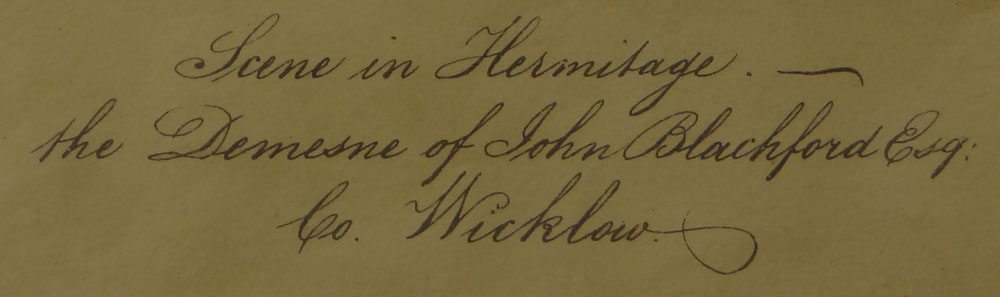 Scene in Hermitage. —
the Demesne of John Blachford Esq:
Co. Wicklow.